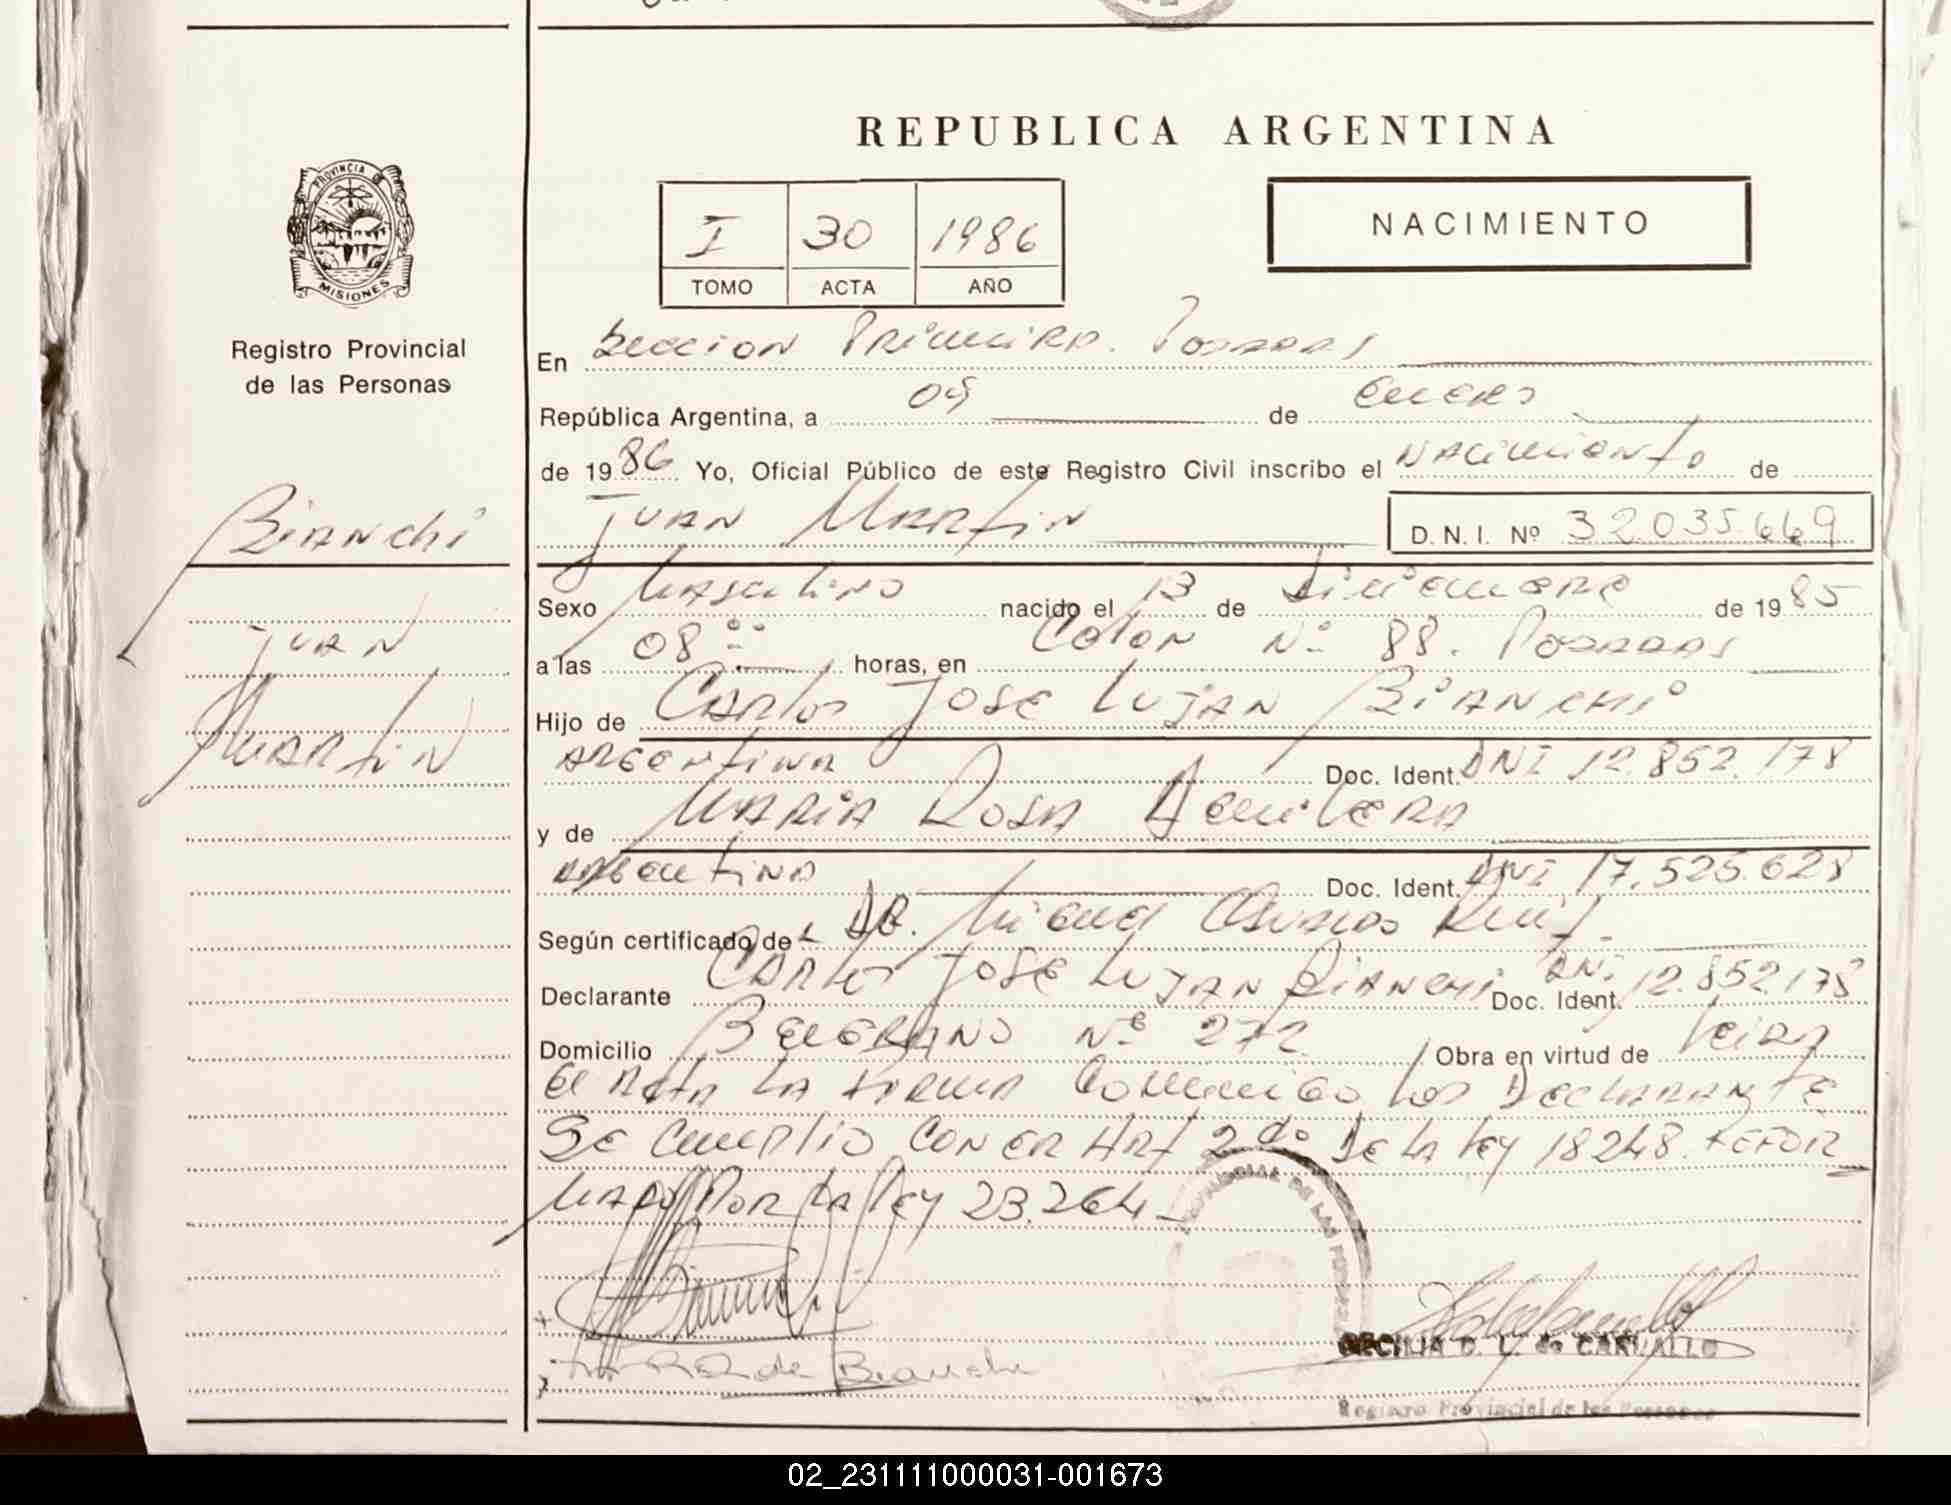 REPUBLICA ARGENTINA
PROVINCIA DE
MISIONES
Registro Provincial
de las Personas
I 30 1986
TOMO ACTA AÑO
NACIMIENTO
En Seccion Primera. Posadas
República Argentina, a 09 de Enero
de 1986 Yo, Oficial Público de este Registro Civil inscribo el Nacimiento de
Bianchi
Juan Martin D.N.I. Nº 32035669
Sexo Masculino nacido el 13 de Diciembre de 1985
Juan
a las 08 horas, en Colon Nº 88. Posadas
Martin
Hijo de Carlos Jose Lujan Bianchi
Argentina Doc. Ident. DNI 12.852.178
y de Maria Rosa Aguilera
Argentina Doc. Ident. DNI 17.525.628
Según certificado del DR. Miguel Osvaldo Ruiz.
Declarante Carlos Jose Lujan Bianchi Doc. Ident. DNI 12.852178
Domicilio Belgrano Nº 272 Obra en virtud de
el Acta la firma Conmigo los Declarante
Se Cumplio Con er Art 2do De la Ley 18248. refor
mado Por la Ley 23.264
de Bianchi
CECILIA D. L. de CARVALLO
Registro Provincial de las Personas
02_231111000031-001673